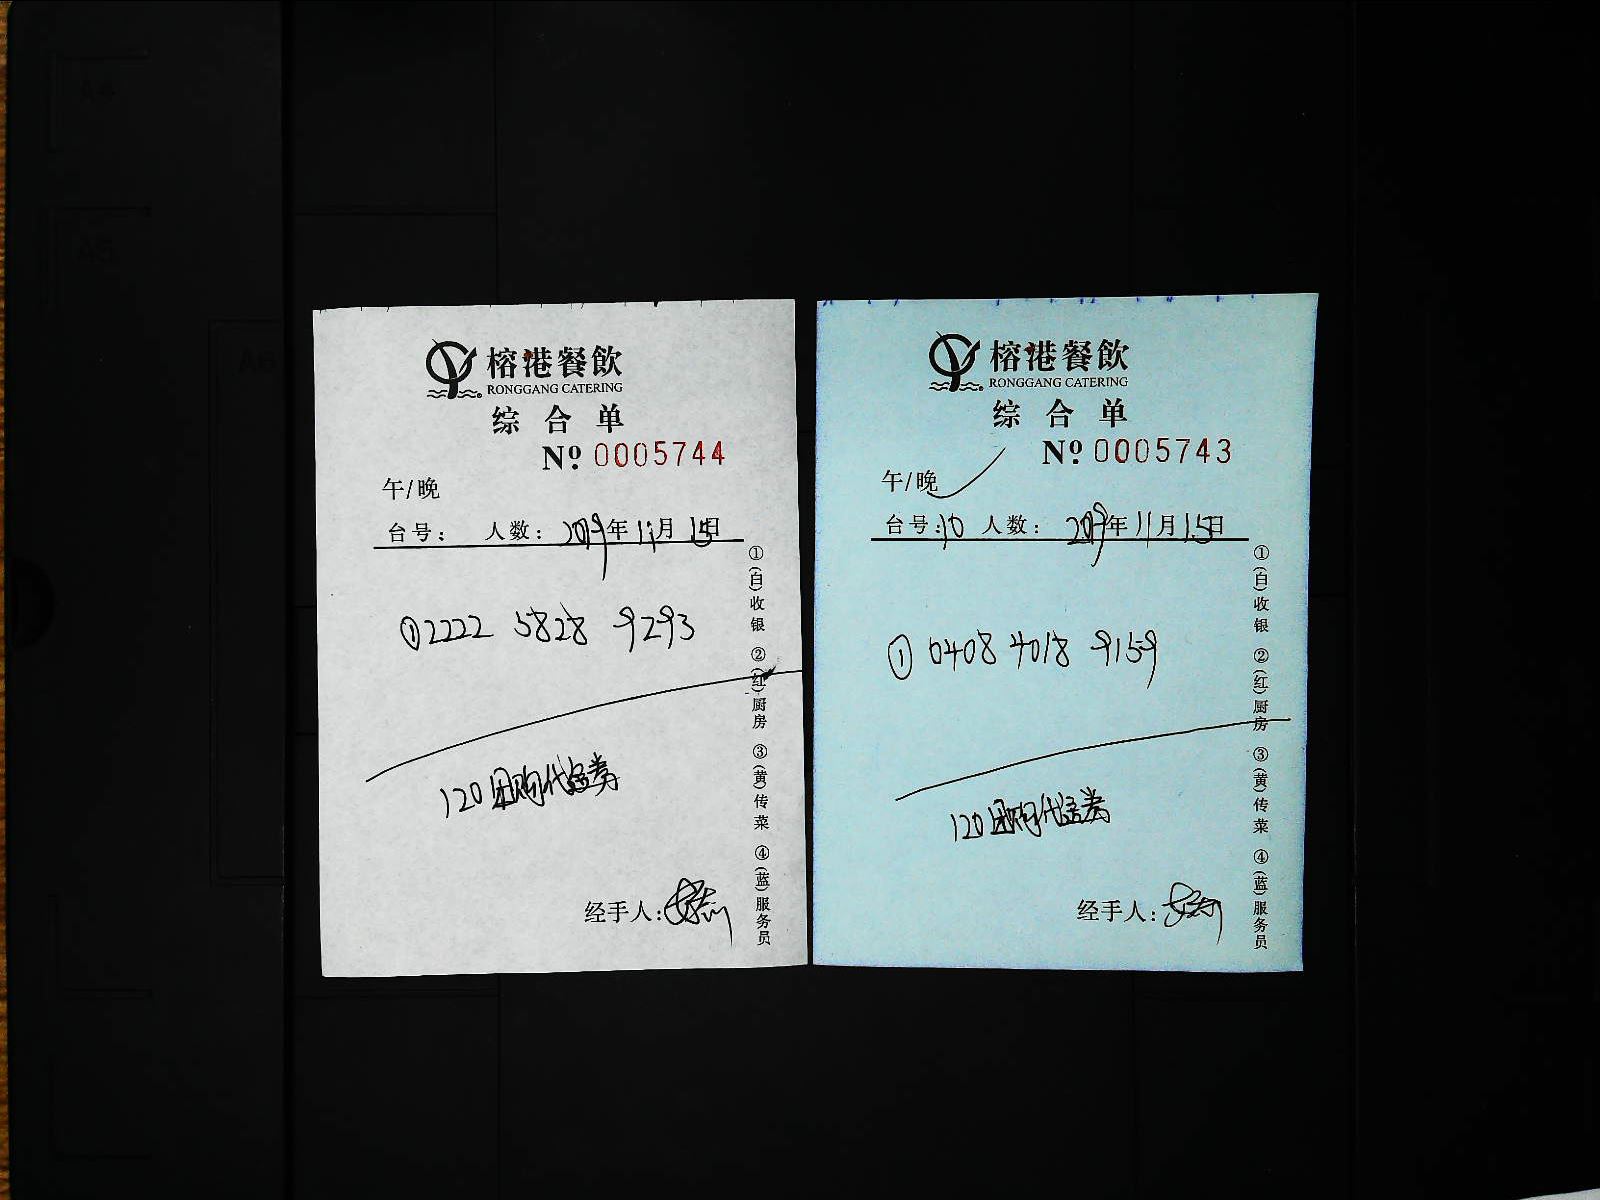 榕港餐飲
RONGGANG CATERING
综合单
Nº 0005744
午/晚
台号： 人数： 2019年11月15日
① 2222 5828 9293
120团购代金券
经手人：
①(白)收银 ②(红)厨房 ③(黄)传菜 ④(蓝)服务员
榕港餐飲
RONGGANG CATERING
综合单
Nº 0005743
午/晚
台号：10 人数： 2019年11月15日
① 0408 4018 9159
120团购代金券
经手人：
①(白)收银 ②(红)厨房 ③(黄)传菜 ④(蓝)服务员